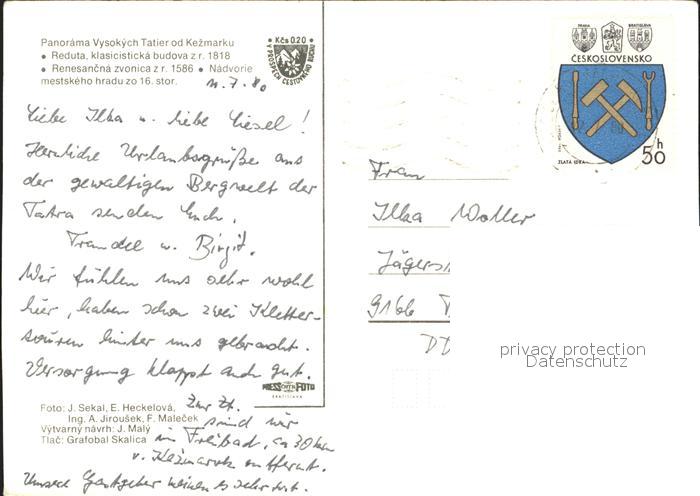 Panoráma Vysokých Tatier od Kežmarku
• Reduta, klasicistická budova z r. 1818
• Renesančná zvonica z r. 1586 • Nádvorie
mestského hradu zo 16. stor.
Kčs 0.20
PROSPECH CESTOVNÉHO RUCHU
11.7.80
Liebe Ilka u. liebe Liesel!
Herzliche Urlaubsgrüße aus
der gewaltigen Bergwelt der
Tatra senden Euch,
Traudel u. Birgit.
Wir fühlen uns sehr wohl
hier, haben schon zwei Kletter-
touren hinter uns gebracht.
Versorgung klappt auch gut.
Zur Zt.
sind wir
in Freibad, ca 30 km
v. Kežmarok entfernt.
Unsere Gastgeber meinen es sehr gut.
PRESSFOTO
BRATISLAVA
Foto: J. Sekal, E. Heckelová,
Ing. A. Jiroušek, F. Maleček
Výtvarný návrh: J. Malý
Tlač: Grafobal Skalica
PRAHA
BRATISLAVA
ČESKOSLOVENSKO
ZLATÁ IDKA
50 h
Frau
Ilka Woller
Jägers
9166
DD
privacy protection
Datenschutz